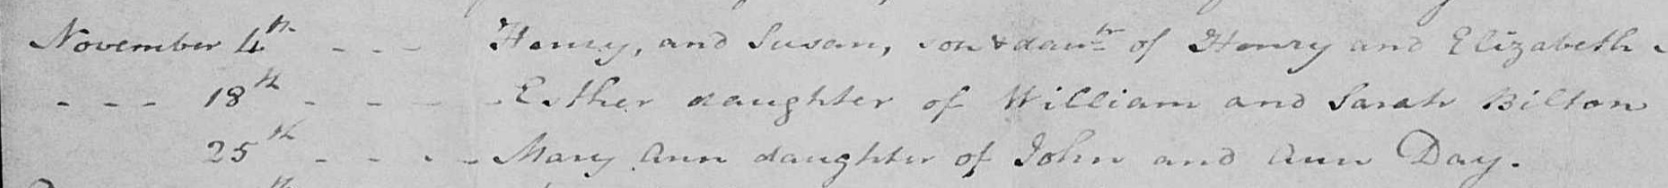 November 4th - - - Henry, and Susan, son & daur of Henry and Elizabeth
- - - 18th - - - - Esther daughter of William and Sarah Bilton
25th - - - - Mary Ann daughter of John and Ann Day.